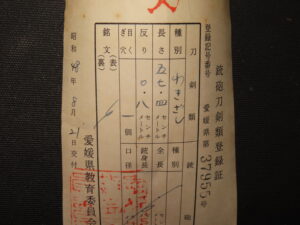 銃砲刀剣類登録証
登録記号番号 愛媛県第37955号
刀剣類
種別 わきざし
長さ 五七・四 センチメートル
反り 〇・八 センチメートル
目くぎ穴 一個
銘文 (表) (裏)
銃砲
種別
全長
銃身長
口径
昭和48年8月21日交付
愛媛県教育委員会